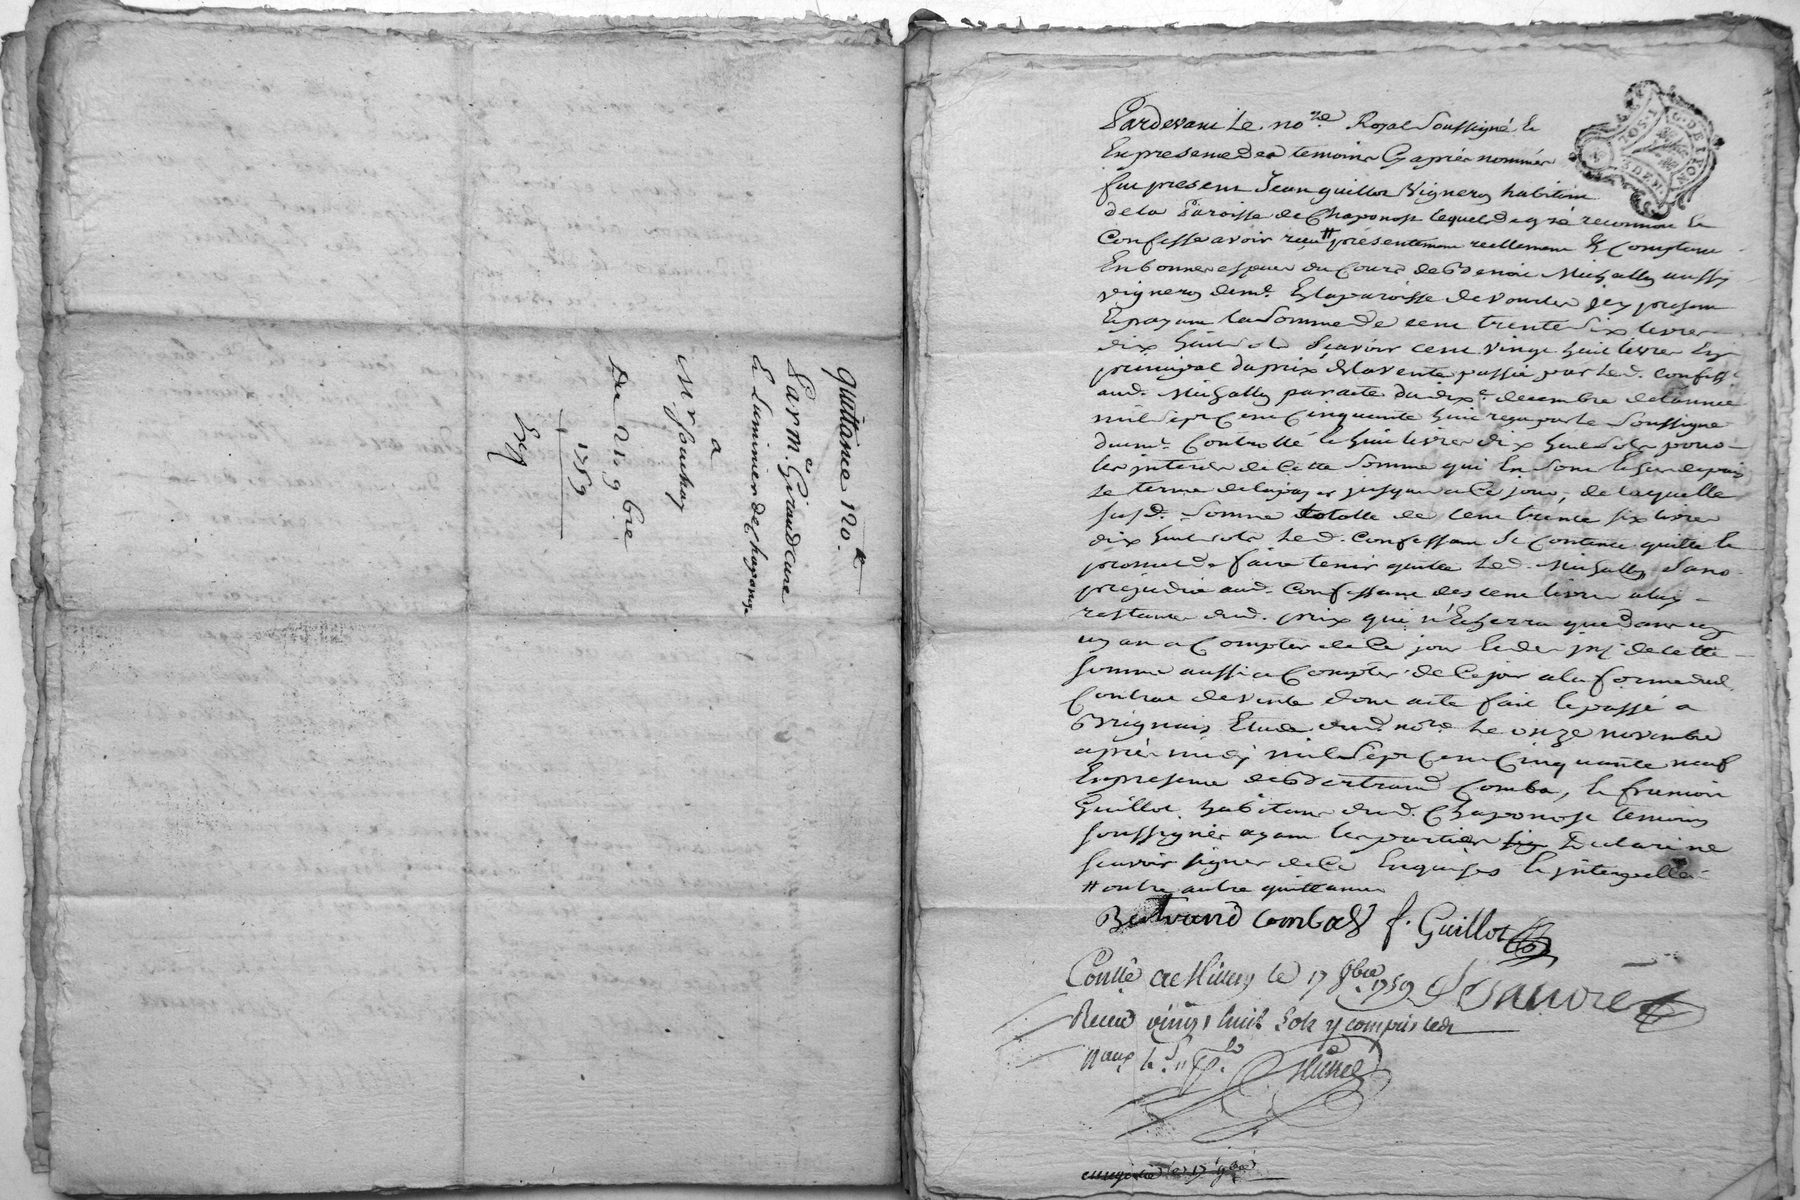 quittance 120.#
Par m.e Giraud cure
& Luminier de chaponost
a
Mr fouchay
Du 21 9bre
1759
Exp
Pardevant Le no.re Royal Soussigné &
En presence des temoins Cy aprés nommés
fut present Jean guillot Vigneron habitant
de la Paroisse de Chaponost lequel de gré reconnoit &
Confesse avoir receu # présentement reellement & Comptant
En bonnes especes du Cours de Benoit Michallon aussy
vigneron dem.t En la paroisse de Vourles icy present
& payant la Somme de cent trente Six livres
dix huit sols Scavoir cent vingt huit livres En
principal du prix de la vente passée par Led. Confess.t
aud. Michallon par acte du dix.e decembre de l'année
mil Sept Cent Cinquante huit reçu par le Soussigné
duem.t Controllé & huit livres dix huit sols pour
les interets de Cette Somme qui En sont Eschus depuis
Le terme de la payer jusques a Ce jour, de laquelle
susd. Somme totalle de Cent trente six livres
dix huit sols Led. Confessant Se Contente quitte &
promet de faire tenir quitte Led. Michallon Sans
prejudice aud. Confessant des cent livres a luy
restantes dud. prix qui n'Echerra que dans
un an a Compter de Ce jour & des jnt. de cette
somme aussi a Compter de Ce jour a la forme dud.
Contrat de vente dont acte fait & passé a
Brignais Etude dud. no.re Le onze novembre
aprés midy mil Sept Cent Cinquante neuf
En presence de Bertrand Comba, & françois
Guillot habitans dud. Chaponost temoins
soussignés ayant les parties Declaré ne
scavoir signer de Ce Enquises & jnterpellées
# outre autre quittance
Bertrand Combat f. Guillot
Conllé a St Genis le 17 9bre 1759
Receu vingt huit Sols y compris les